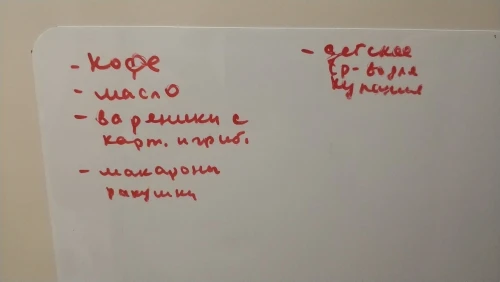 - кофе
- масло
- вареники с
карт. и гриб.
- макароны
ракушки
- детское
ср-во для
купания